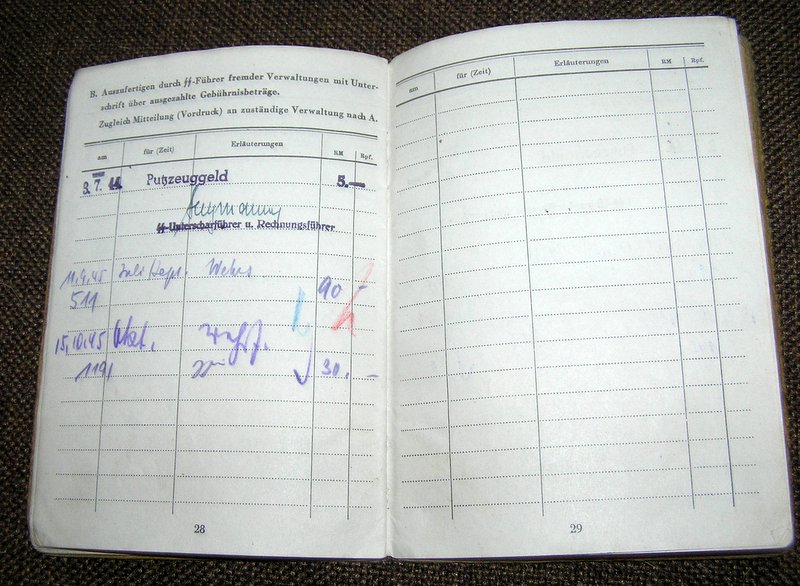 B. Auszufertigen durch ϟϟ-Führer fremder Verwaltungen mit Unter-
schrift über ausgezahlte Gebührnisbeträge.
Zugleich Mitteilung (Vordruck) an zuständige Verwaltung nach A.
am für (Zeit) Erläuterungen RM Rpf.
8. 7. 44 Putzzeuggeld 5.—
ϟϟ-Unterscharführer u. Rechnungsführer
11.9.45 Juli Sept. 90 -
511
15.10.45 Okt.
1191 30. -
28
am für (Zeit) Erläuterungen RM Rpf.
29